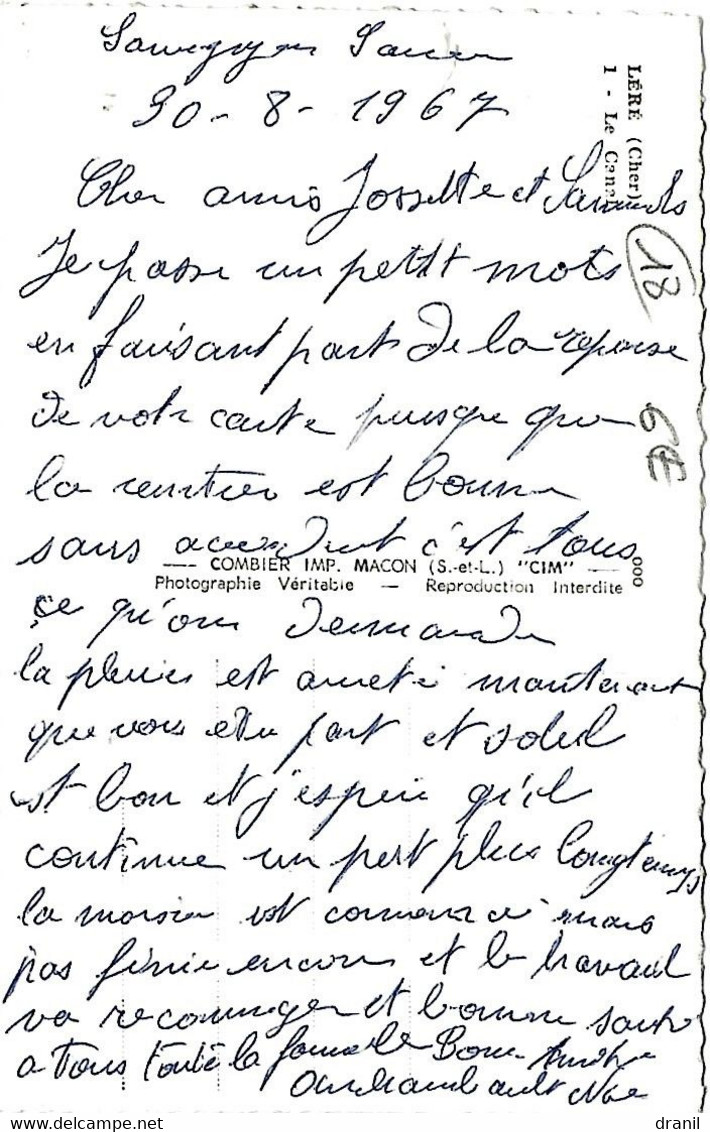 30-8-1967
LÉRÉ (Cher)
1 - Le Canal
Cher amis Jossette et
Je passe un petit mots
18
en faisant part De la reponse
De votre carte puisque que
6€
la rentrier est bonne
sans accident c'est tous
COMBIER IMP. MACON (S.-et-L.) "CIM"
Photographie Véritable — Reproduction Interdite
000
ce qu'on Demande
la pluies est arreté maintenant
que vous etes part et soleil
est bon et j'espère qu'il
continue un pert plus longtemps
la moisson est commencé mais
pas finie encore et le travail
va recommencer et bonne santé
a Tous toute la famille Bonne
dranil